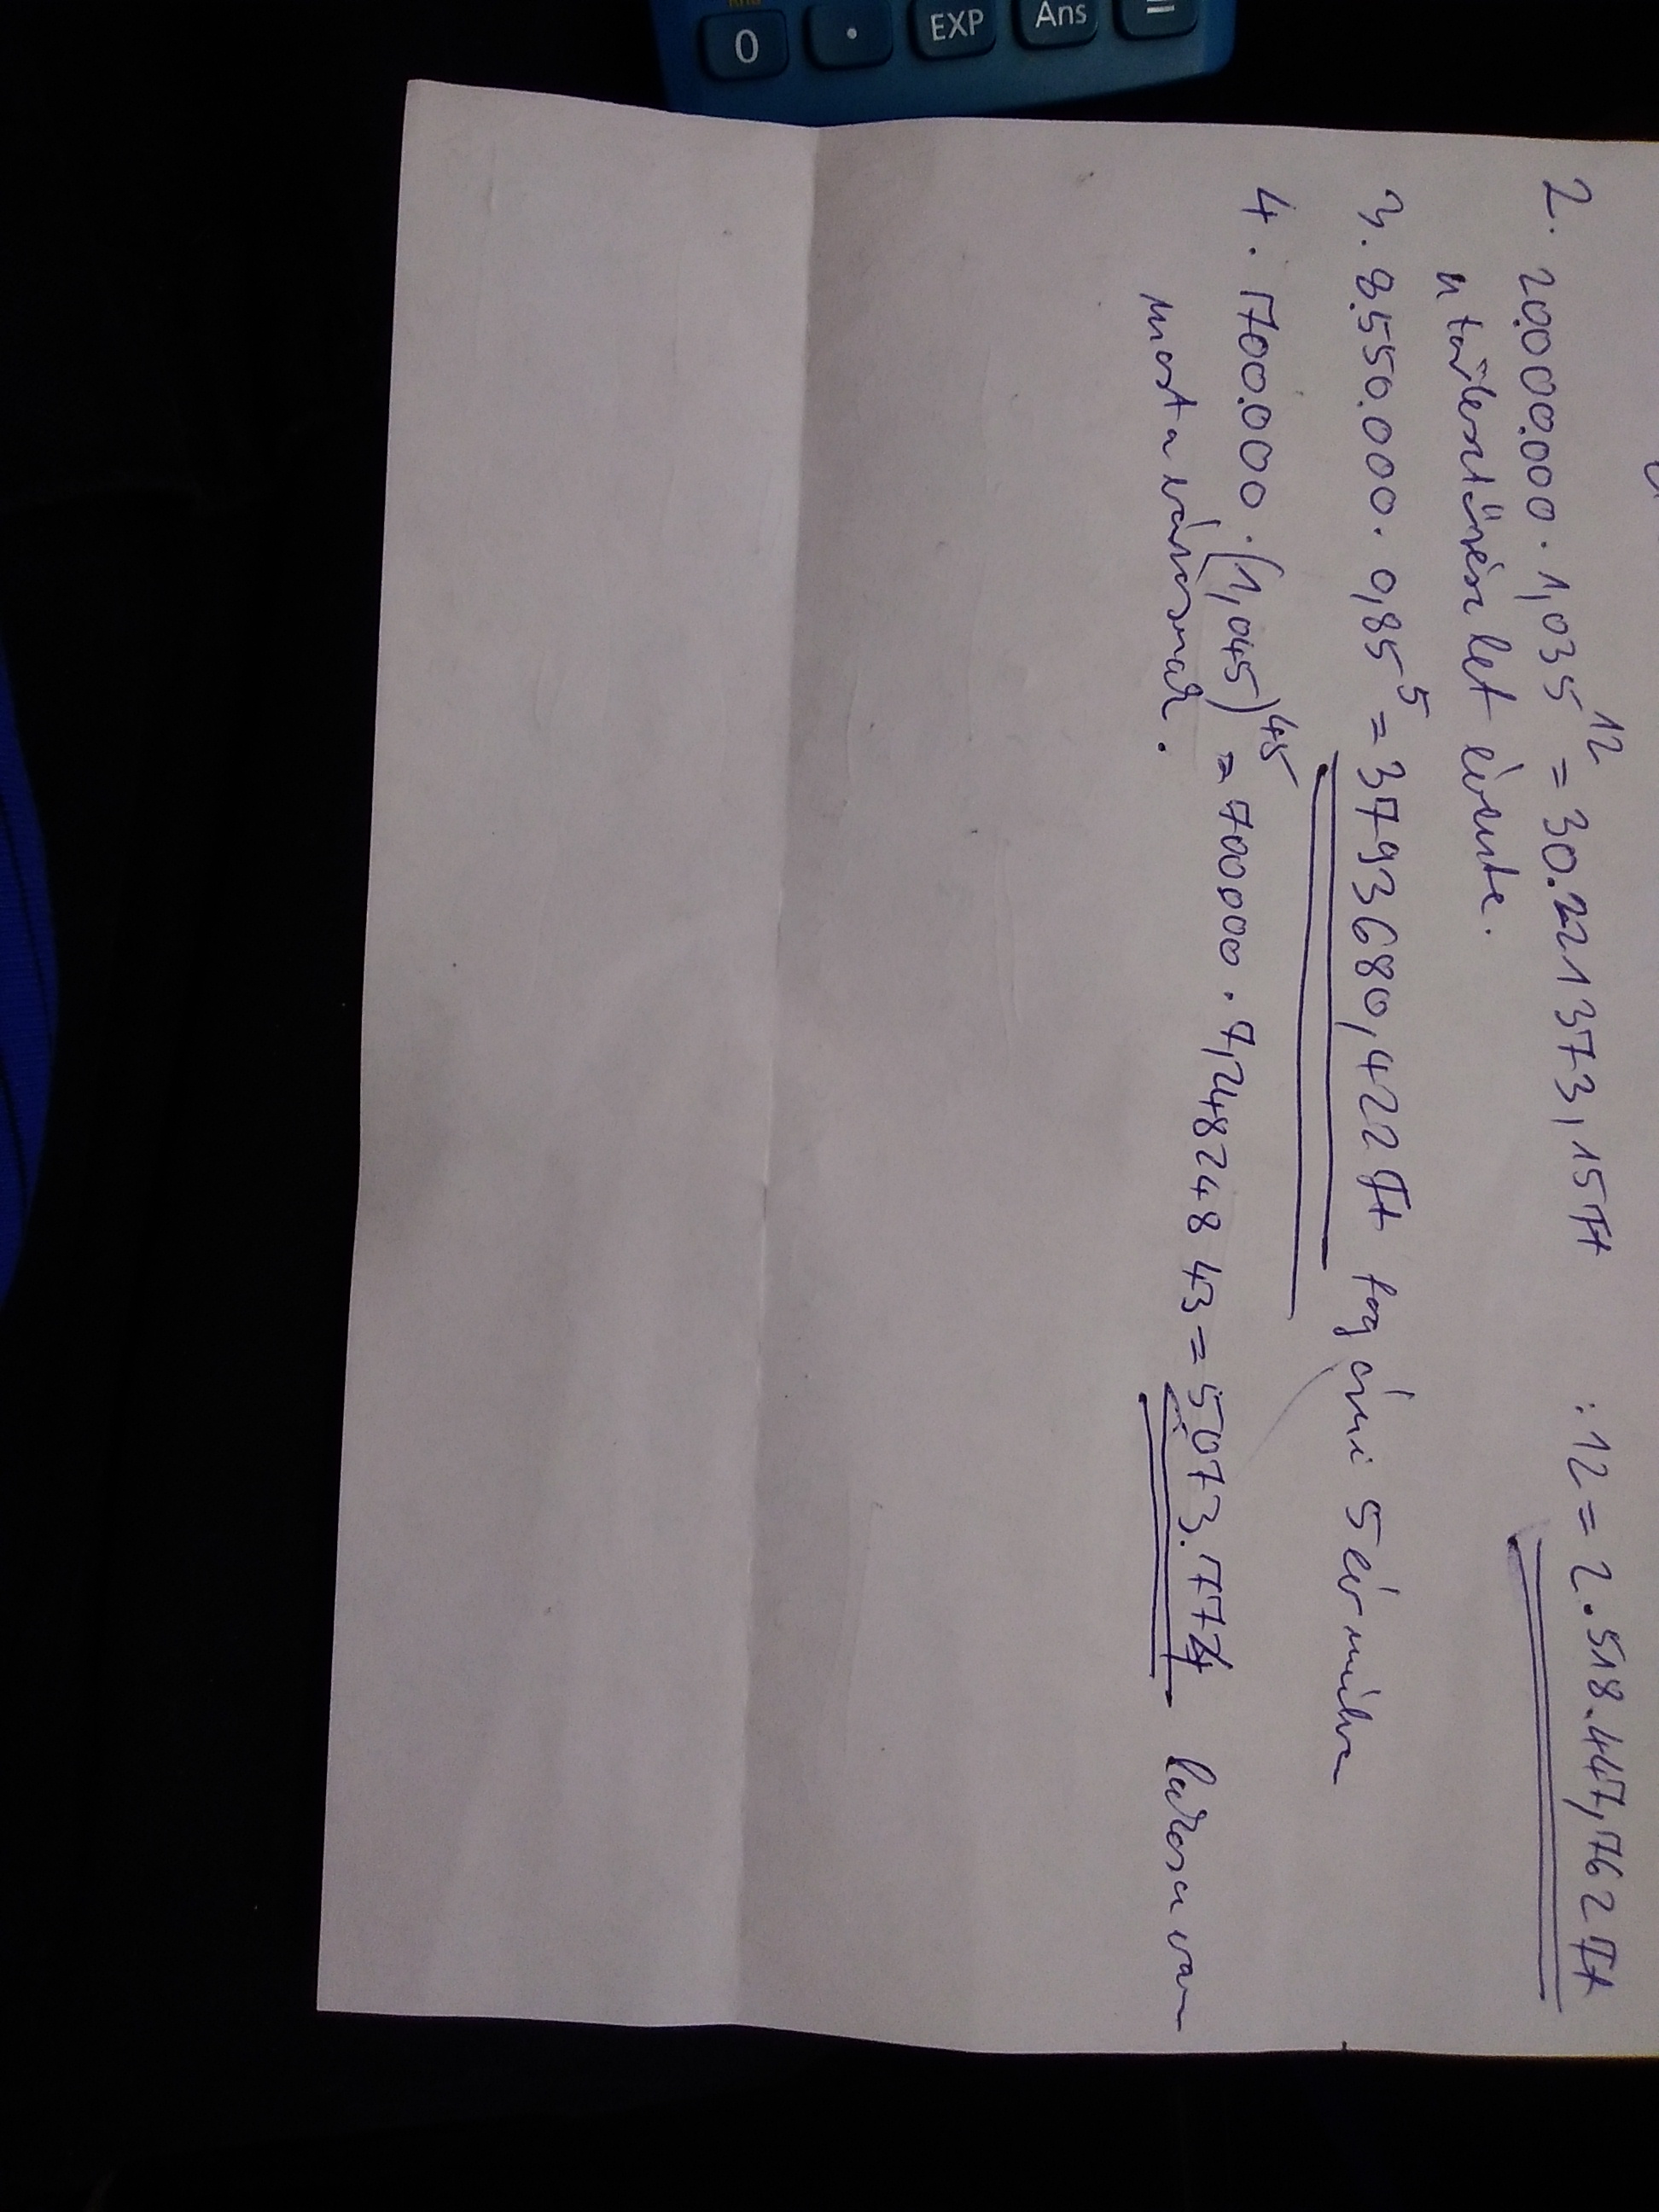 0 . EXP Ans =
2. 20.000.000 · 1,035¹² = 30.221373,15Ft :12 = 2.518.447,762 Ft
a törlesztőrészlet évente.
3. 8.550.000 · 0,85⁵ = 3793680,422 Ft fog érni 5 év múlva
4. 700.000 · (1,045)⁴⁵ = 700000 · 7,24824843 = 5.073.774 lakosa van
most a városnak.